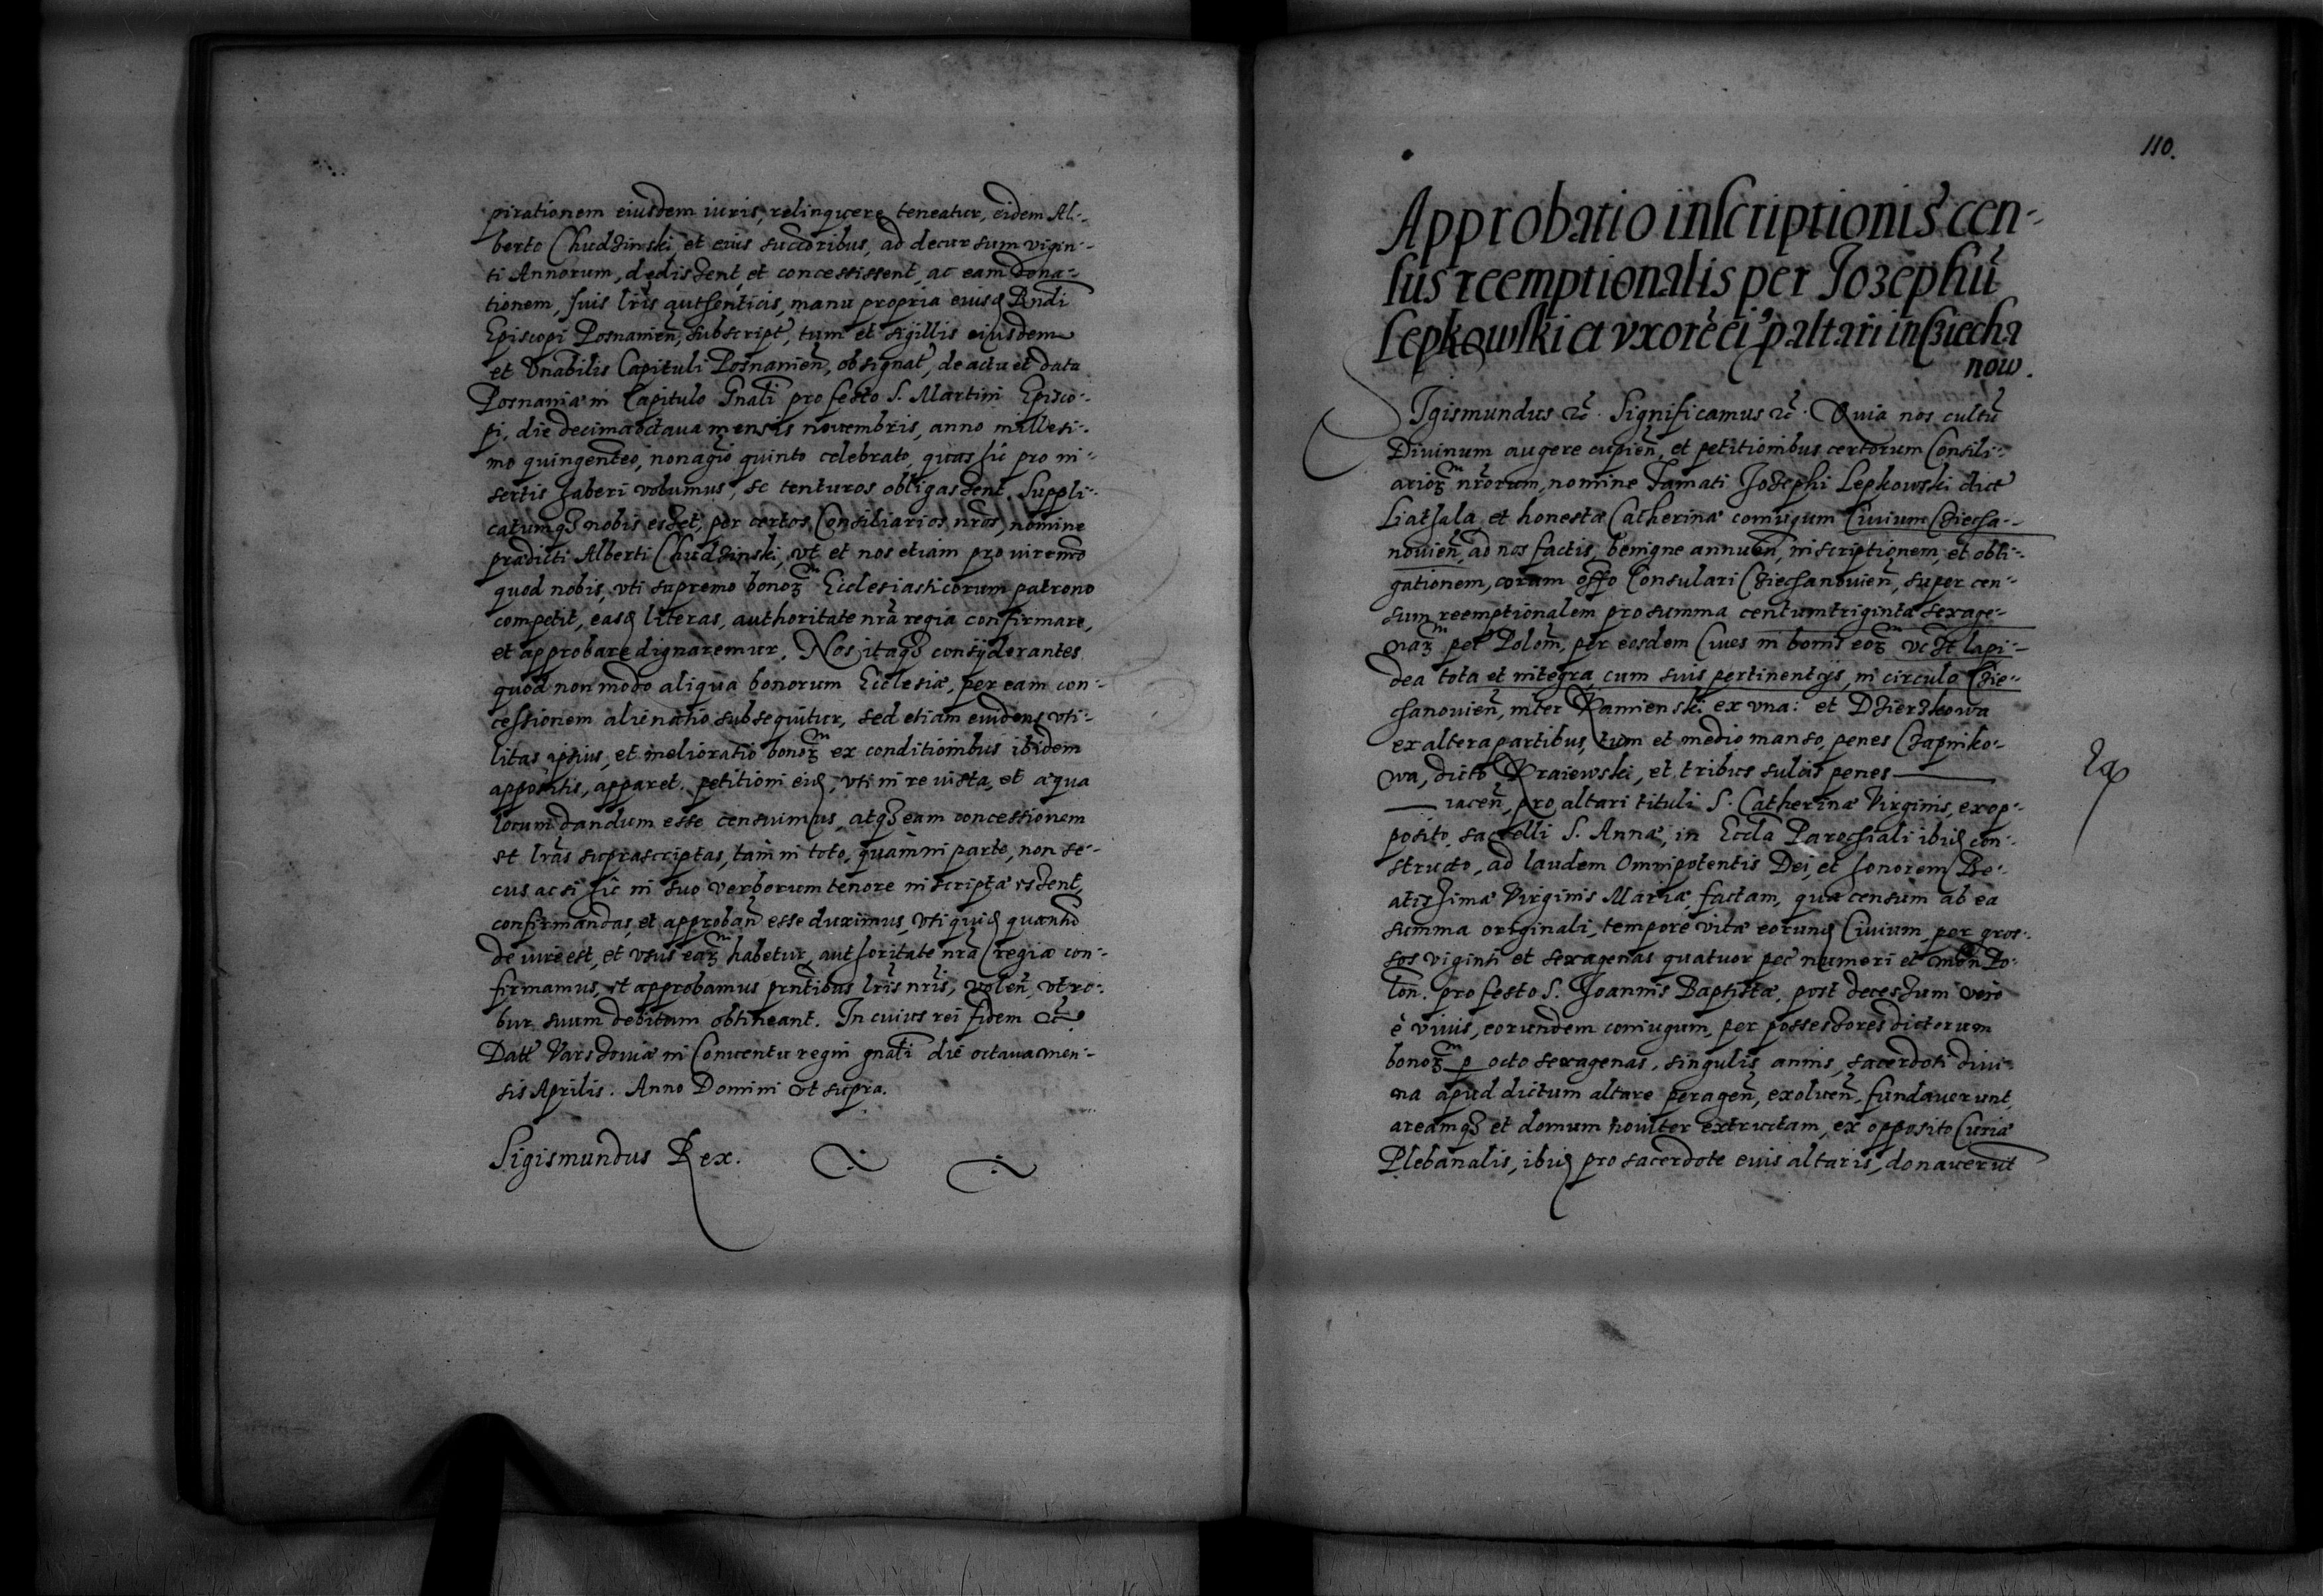 pirationem eiusdem iuris, relinquere teneatur, eidem Al-
berto Chudzinski et euis succoribus, ad decursum vigin-
ti Annorum, dedissent, et concessissent, ac eam dona-
tionem, suis lris authenticis, manu propria euisd Rndi
Episcopi Posnanien, subscript, tum et sigillis eiusdem
et Vnabilis Capituli Posnanien, obsignat, de actu et data
Posnaniæ in Capitulo Gnali pro festo S. Martini Episco-
pi, die decima octaua mensis nouembris, anno millesi-
mo quingenteo, nonagio quinto celebrato, quas hic pro in-
sertis haberi volumus, se tenturos obligassent. Suppli-
catumq3 nobis esset, per certos Consiliarios nros, nomine
prædicti Alberti Chudzinski, vt et nos etiam pro iure mo
quod nobis, vti supremo bonoR Ecclesiasticorum patrono
competit, easd literas, authoritate nra regia confirmare,
et approbare dignaremur. Nos itaq3 consyderantes
quod non modo aliqua bonorum Ecclesiæ, per eam con-
cessionem alienatio subsequitur, sed etiam euidens vti-
litas ipsius, et melioratio bonoR ex conditioinbus ibidem
appositis, apparet. petitioni eid, vti in re iusta, et æqua
locum dandum esse censuimus, atq3 eam concessionem
et lras suprascriptas, tam in toto, quàm in parte, non se-
cus ac si hic in suo verborum tenore inscriptæ essent,
confirmandas, et approban esse duximus, vti quid quantu
de iure est, et vsus eaR habetur, authoritate nra regia con-
firmamus, et approbamus prntibus lris nris, volen, vt ro-
bur suum debitum obtineant. In cuius rei fidem etc
Datt Varssouiæ in Conuentu regni gnali die octaua men-
sis Aprilis. Anno Domini vt supra.
Sigismundus Rex.
110.
Approbatio inscriptionis cen-
sus reemptionalis per Jozephu
Lepkowski et vxore ei' p altari in Cziecha
now.
Sigismundus etc. Significamus etc. Quia nos cultu
Diuinum augere cupien, et petitionibus certorum Consili-
arioR nrorum, nomine Famati Jozephi Lepkowski dict
Liathala, et honestæ Catherinæ coniugum Ciuium Cziecha-
nouien, ad nos factis, benigne annuen, inscriptionem, et obli-
gationem, coram offo Consulari Cziechanouien, super cen-
sum reemptionalem pro summa centum triginta sexage-
naR pec Polon, per eosdem Ciues in bonis eoR vczt lapi-
dea tota et integra, cum suis pertinentijs, in circulo Czie-
chanouien, inter Kamienski ex vna: et Dzierzkowa
ex altera partibus, tum et medio manso, penes Czapniko-
wa, dicto Kraiewski, et tribus sulcis penes
iacen, pro altari tituli S. Catherinæ Virginis, ex op-
posito, sacelli S. Annæ, in Eccla Parochiali ibid con-
structo, ad laudem Omnipotentis Dei, et honorem Be-
atissimæ Virginis Mariæ, factam, quæ censum ab ea
summa originali, tempore vitæ eorund Ciuium, per gros-
sos viginti et sexagenas quatuor pec numeri et mon Po-
lon. pro festo S. Joannis Baptistæ, post decessum vero
è viuis, eorundem coniugum, per possessores dictorum
bonoR p octo sexagenas, singulis annis, sacerdoti diui-
na apud dictum altare peragen, exoluen, fundauerunt,
areamq3 et domum nouiter extructam, ex opposito Curiæ
Plebanalis, ibid pro sacerdote euis altaris, donauerut